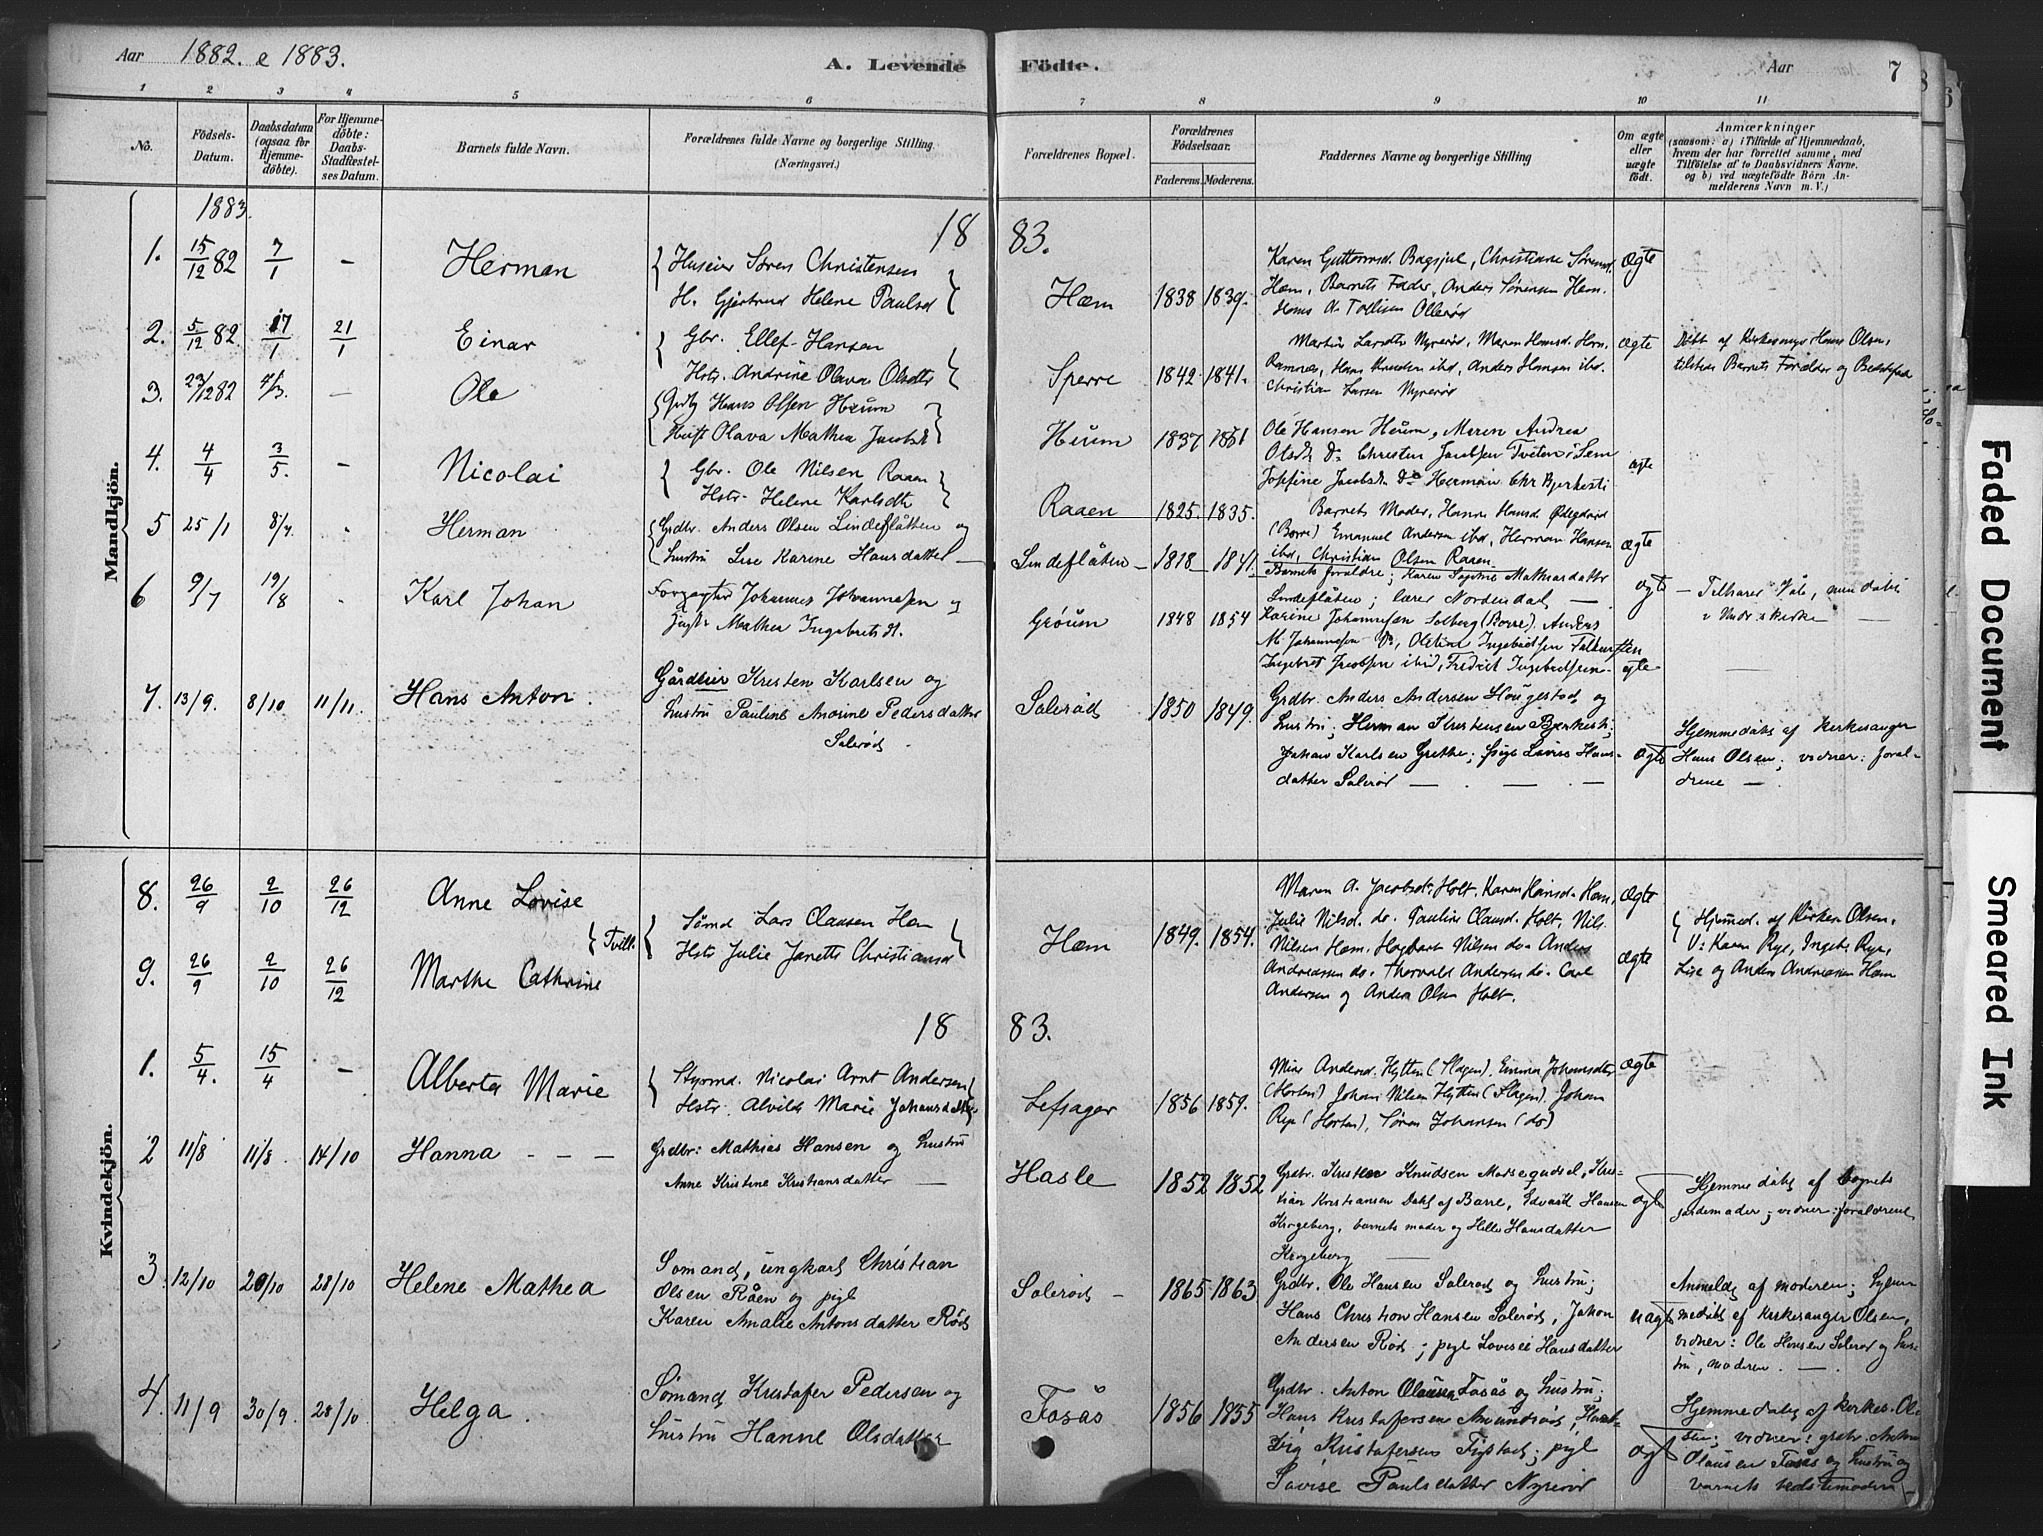 Aar 1882. e 1883.
A. Levende Födte.
Aar 7
1 2 3 4 5 6 7 8 9 10 11
No.
Födsels-
Datum.
Daabsdatum
(ogsaa for
Hjemme-
döbte).
For Hjemme-
döbte:
Daabs-
Stadfæstel-
ses Datum.
Barnets fulde Navn.
Forældrenes fulde Navne og borgerlige Stilling
(Næringsvei.)
Forældrenes Bopæl.
Forældrenes
Födselsaar.
Faderens. Moderens.
Faddernes Navne og borgerlige Stilling
Om ægte
eller
uægte
født.
Anmærkninger
(samsom: a) i Tilfælde af Hjemmedaab,
hvem der har forrettet samme, med
Tilföielse af to Daabsvidners Navne.
og b) ved uægtefödte Börn An-
melderens Navn m. V.)
Mandkjön.
1883.
18 83.
1. 15/12 82 7/1 - Herman
Huseier Søren Christensen
H. Gjertrud Helene Paulsd
Hæm 1838 1839.
Karen Guttormsd. Bagsjul, Christiane Sørensd.
Hæm, Barnets Fader, Anders Sørensen Hæm.
Hans A. Tollisen Ollerød
Ægte
2. 5/12 82. 17/1 21/1 Einar
Gbr. Ellef Hansen
Hstr. Andrine Olava Olsdtr
Sperre 1842 1841.
Martin Larsdtr Nyrerød, Maren Hansd. Horn.
Ramnæs, Hans Knudsen ibd, Anders Hansen ibd.
Christian Larsen Nyrerød
ægte
Døbt af Kirkesangr Hans Olsen,
tilstede Barnets Forældre og Bedstefad
3. 23/12 82 4/3. - Ole
Grdbr Hans Olsen Heum
Hustr Olava Mathea Jacobsdt
Heum 1837 1851
Ole Hansen Heum, Maren Andrea
Olsdt do Christen Jacobsen Tveten i Sem
Josefine Jacobsdt do Herman Chr Bjerkesti
ægte
4. 4/4 3/5. - Nicolai
Gbr. Ole Nilsen Raaen
Hstr. Helene Karlsdtr
Raaen 1825. 1835.
Barnets Moder, Hanne Hansd. Ødegård
(Borre) Emanuel Andersen ibd, Herman Hansen
ibd, Christian Olsen Raaen
ægte
5 25/1 8/4. - Herman
Grdbr. Anders Olsen Lindeflåtten og
hustru Lise Karine Hansdatter
Lindeflåten 1818 1841.
Barnets forældre; Karen Sophie Mathiasdatter
Lindeflåten; lærer Nordendal
ægte
6 9/7 19/8 - Karl Johan
Forpagter Johannes Johannesen og
Hustr Mathea Ingebretsdt.
Grøum 1848 1854
Karine Johannesen Solberg (Borre). Anders
M. Johannesen do, Oletine Ingebretsen Falkensten
Ingebret Jacobsen ibid, Fredrik Ingebretsen
ægte
Tilhører Våle, men døbt
i Undr.s kirke
7. 13/9. 8/10 11/11. Hans Anton.
Gårdeier Kristen Karlsen og
hustru Pauline Anorine Pedersdatter
Solerød
Solerød 1850 1849.
Grdbr. Anders Andersen Hougestad og
hustru; Herman Kristensen Bjerkesti;
Johan Karlsen Grette; pige Lovise Hans-
datter Solerød
ægte
Hjemmedøbt af kirkesanger
Hans Olsen; vidner: foræl-
drene
8. 26/9 2/10 26/12 Anne Lovise
9. 26/9 2/10 26/12 Marthe Cathrine
Tvill.
Sømd Lars Clausen Hæm
Hstr Julie Janette Christiansd
Hæm 1849. 1854.
Maren A. Jacobsdt. Holt. Karen Hansd. Hæm,
Julie Nilsd. do. Pauline Clausd. Holt, Nils
Nilsen Hæm. Hagbart Nilsen do. Anders
Andreassen do. Thorvald Andersen do. Carl
Andersen og Anders Olsen Holt.
Ægte
ægte
Hjemmed. af Kirkes. Olsen.
V: Karen Rye, Ingeb. Rye,
Lise og Anders Andreasen Hæm
Kvindekjön.
18 83.
1. 5/4. 15/4 - Alberta Marie
Styrmd. Nicolai Arnt Andersen
Hstr. Alvilde Marie Johansdatter
Lefsager 1856 1859.
Mina Andersd. Hytten (Slagen). Emma Johansdtr
(Horten) Johan Nilsen Hytten (Slagen). Johan
Rye (Horten), Søren Johansen (do)
Ægte
2 11/8 11/8. 14/10 Hanna - - -
Grdbr: Mathias Hansen og hustru
Anne Kristine Kristiansdatter
Hasle 1852 1852
Grdbr. Kristen Knudsen Morsequdsel, Kris-
tian Kristiansen Dahl af Borre, Edvardt Hansen
Krogeberg, barnets moder og Helle Hansdatter
Krogeberg
ægte
Hjemmedøbt af bognets
jordemoder; vidner: forældrene
3. 12/10 20/10 28/10 Helene Mathea
Sømand, ungkarl Christian
Olsen Råen og pige
Karen Amalie Antonsdatter Rød
Solerød - 1865 1863
Grdbr. Ole Hansen Solerød og hustru;
Hans Christian Hansen Solerød, Johan
Andersen Rød; pige Lovise Hansdatter
uægte
Anmeldt af moderen; hjem-
medøbt af kirkesanger Olsen,
vidner: Ole Hansen Solerød og hus-
tru, moderen.
4. 11/9 30/9. 28/10 Helga.
Sømand Kristofer Pedersen og
hustru Hanne Olsdatter
Fosås 1856 1855
Grdbr. Anton Olausen Fosås og hustru;
Hans Kristofersen Amundrød, Hart-
vig Kristofersen Fystad; pige
Lovise Paulsdatter Nyrerød
ægte
Hjemmedøbt af kirkes. Ol-
sen; vidner: grdbr. Anton
Olausen Fosås og hustru og
barnets bedstemoder
8
6
Faded Document
Smeared Ink